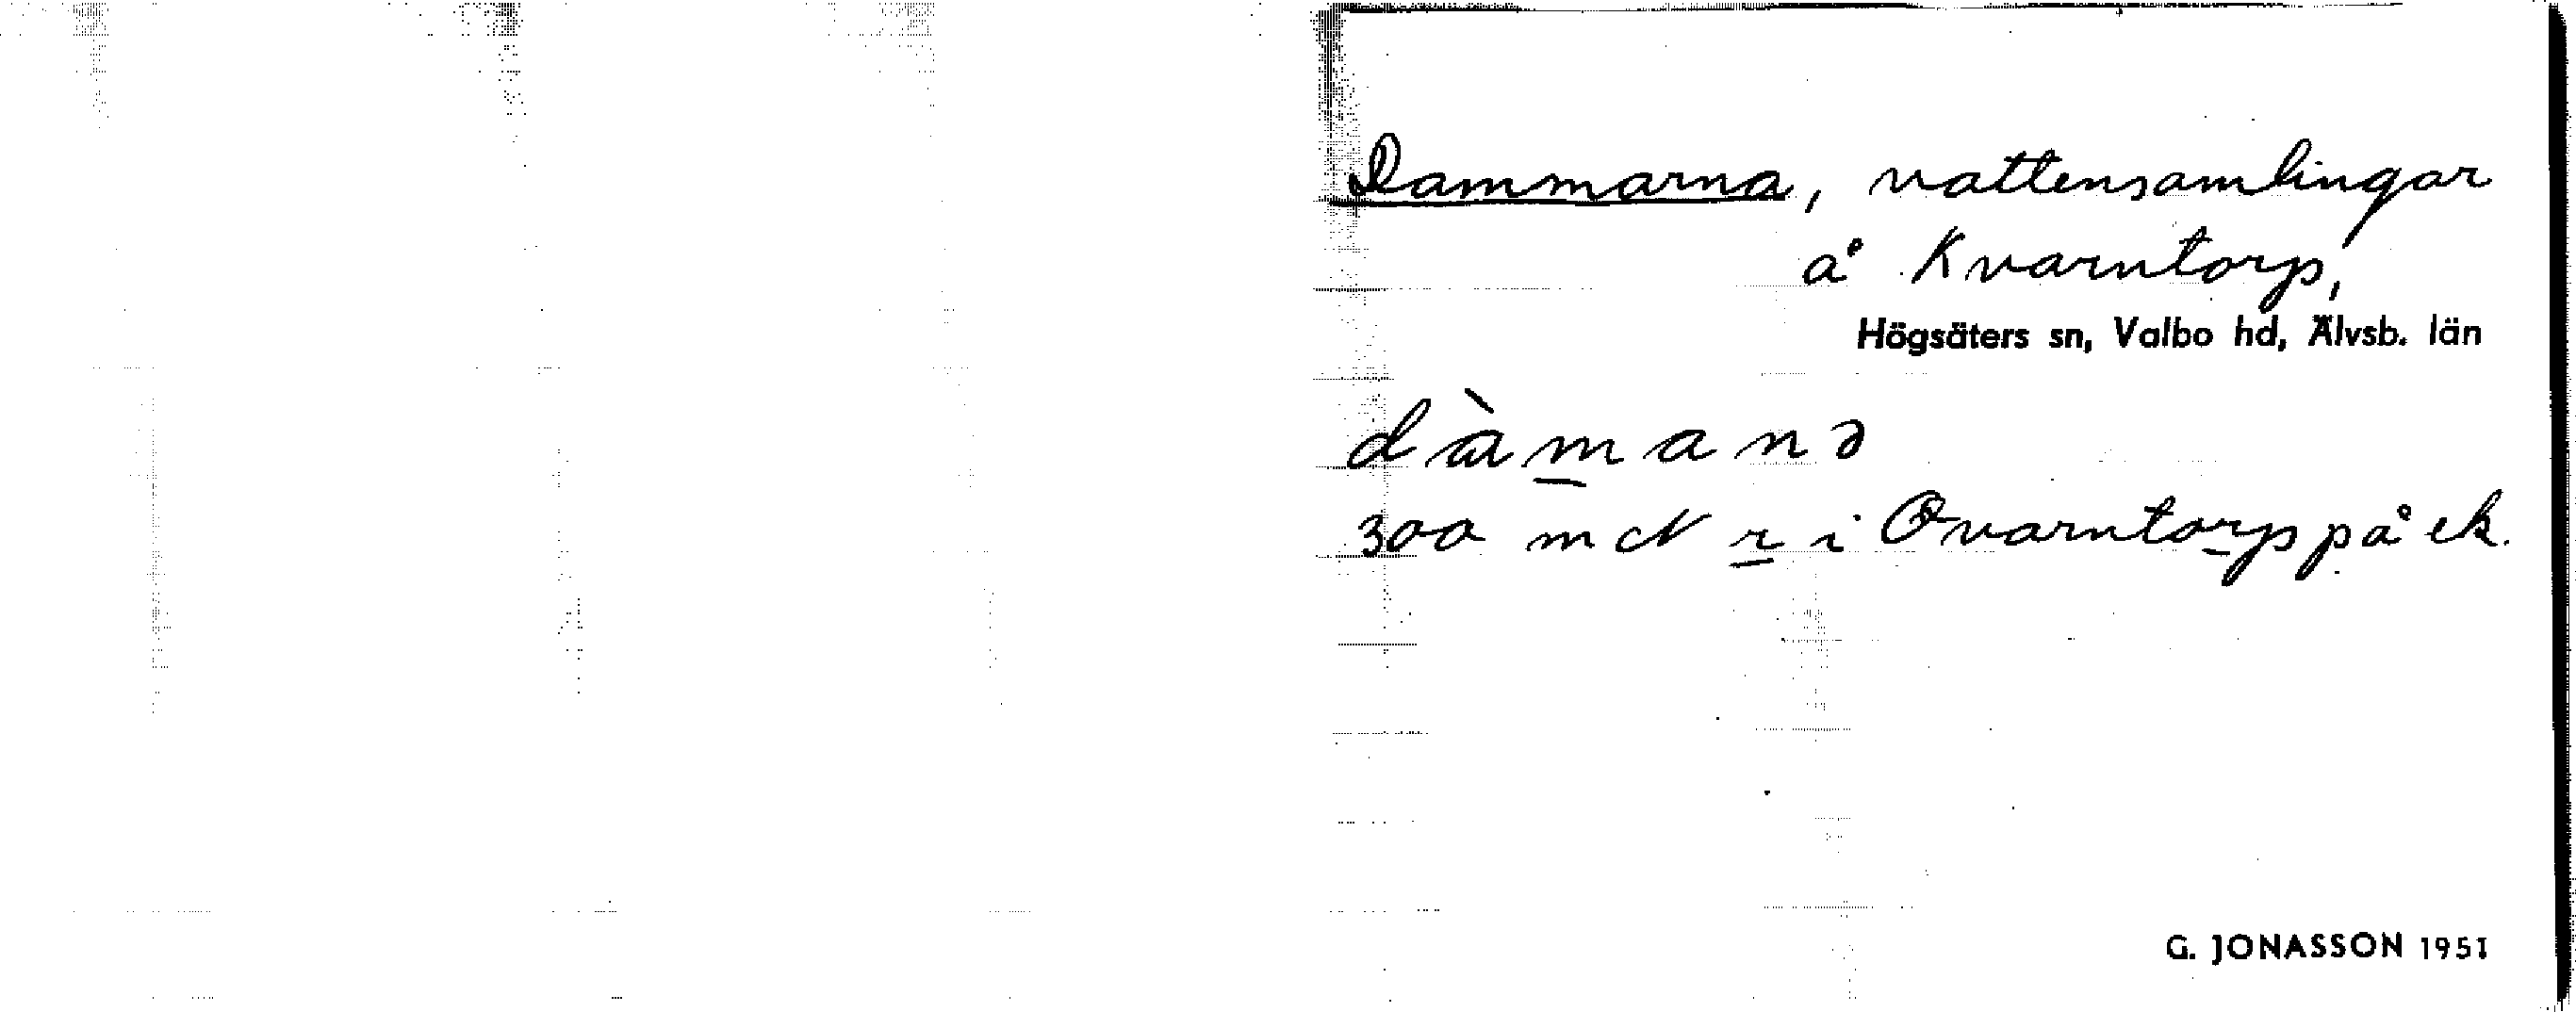 Dammarna, vattensamlingar
å Kvarntorp,
Högsäters sn, Valbo hd, Älvsb. län
dàmanə
300 m N r i Qvarntorp på ek.
G. JONASSON 1951